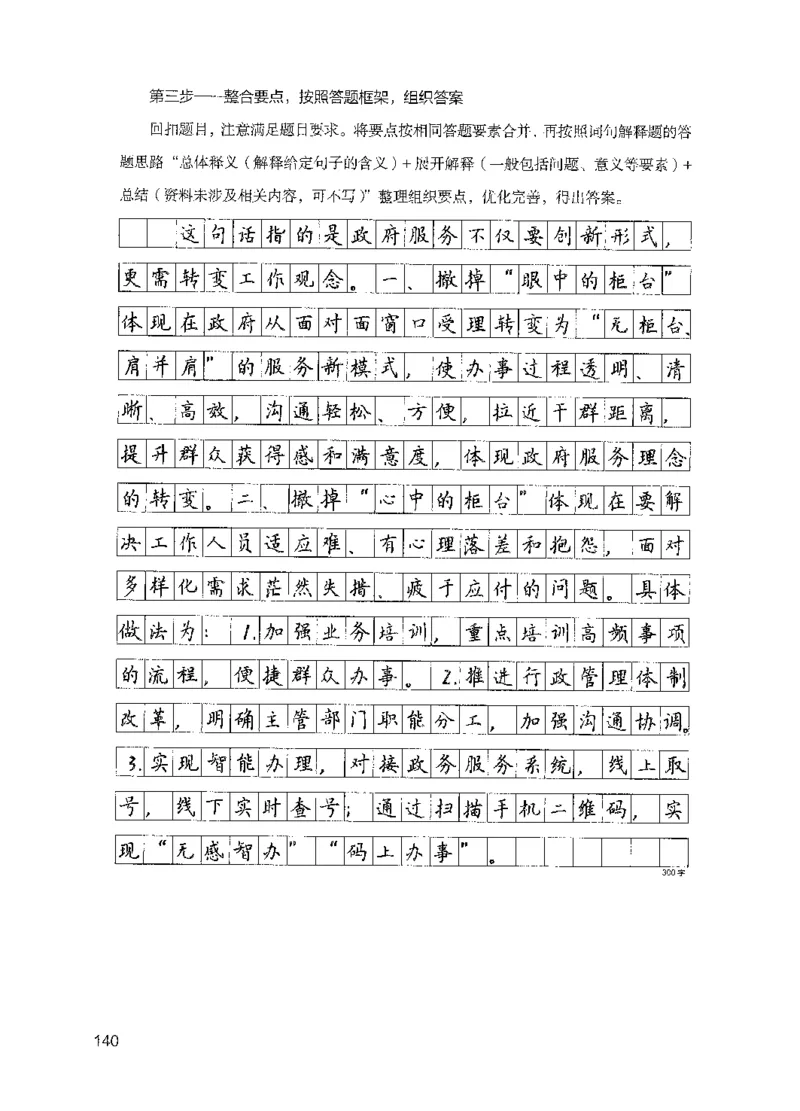 第三步——整合要点，按照答题框架，组织答案
回扣题目，注意满足题目要求。将要点按相同答题要素合并，再按照词句解释题的答
题思路“总体释义（解释给定句子的含义）+展开解释（一般包括问题、意义等要素）+
总结（资料未涉及相关内容，可不写）”整理组织要点，优化完善，得出答案。
这句话指的是政府服务不仅要创新形式，
更需转变工作观念。一、撤掉“眼中的柜台”
体现在政府从面对面窗口受理转变为“无柜台、
肩并肩”的服务新模式，使办事过程透明、清
晰、高效，沟通轻松、方便，拉近干群距离，
提升群众获得感和满意度，体现政府服务理念
的转变。二、撤掉“心中的柜台”体现在要解
决工作人员适应难、有心理落差和抱怨，面对
多样化需求茫然失措、疲于应付的问题。具体
做法为：1.加强业务培训，重点培训高频事项
的流程，便捷群众办事。2.推进行政管理体制
改革，明确主管部门职能分工，加强沟通协调。
3.实现智能办理，对接政务服务系统，线上取
号，线下实时查号；通过扫描手机二维码，实
现“无感智办”“码上办事”。
300字
140